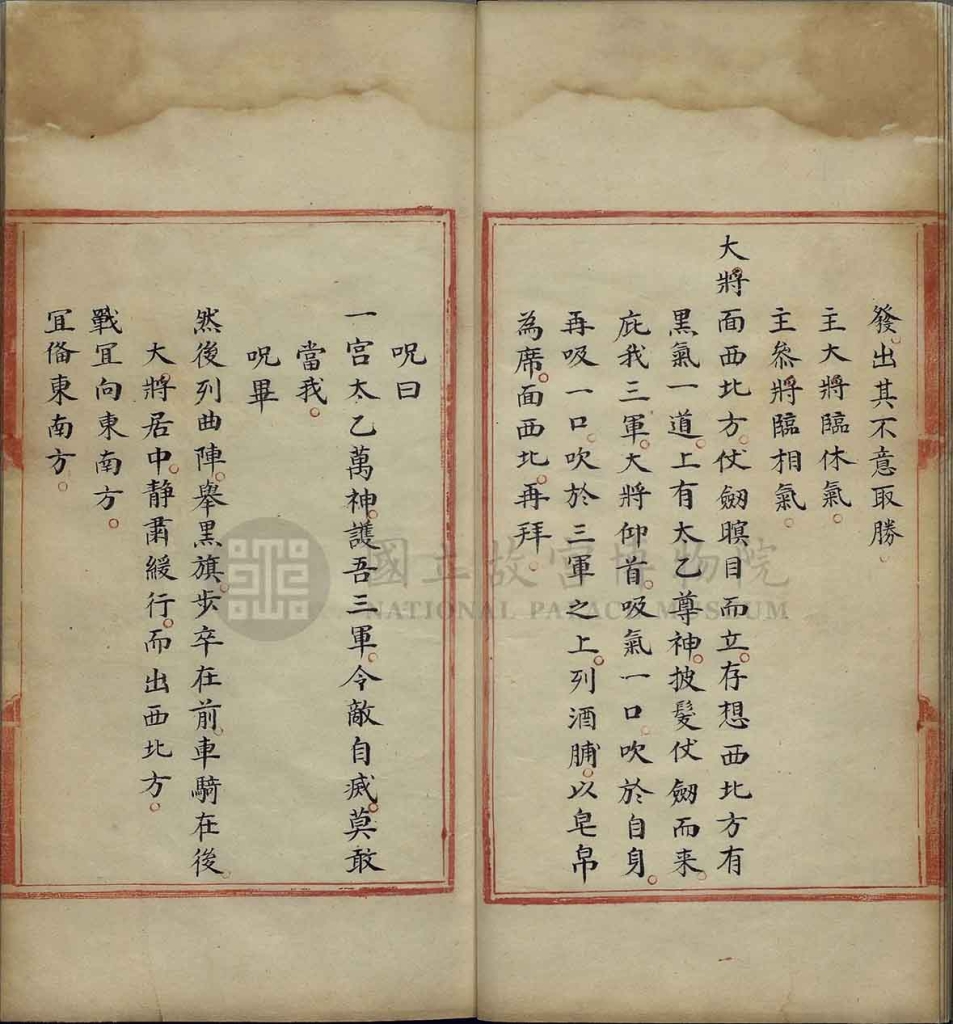 發出其不意取勝。
主大將臨休氣。
主叅將臨相氣。
大將面西北方。仗劒瞑目而立。存想西北方有
黑氣一道。上有太乙尊神。披髮仗劒而来。
庇我三軍。大將仰首。吸氣一口。吹於自身。
再吸一口。吹於三軍之上。列酒脯。以皂帛
為席。面西北。再拜。
呪曰
一宮太乙萬神。護吾三軍。令敵自滅。莫敢
當我。
呪畢
然後列曲陣。舉黑旗。歩卒在前。車騎在後。
大將居中。静肅緩行。而出西北方。
戰宜向東南方。
宜俻東南方。
國立故宮博物院
NATIONAL PALACE MUSEUM